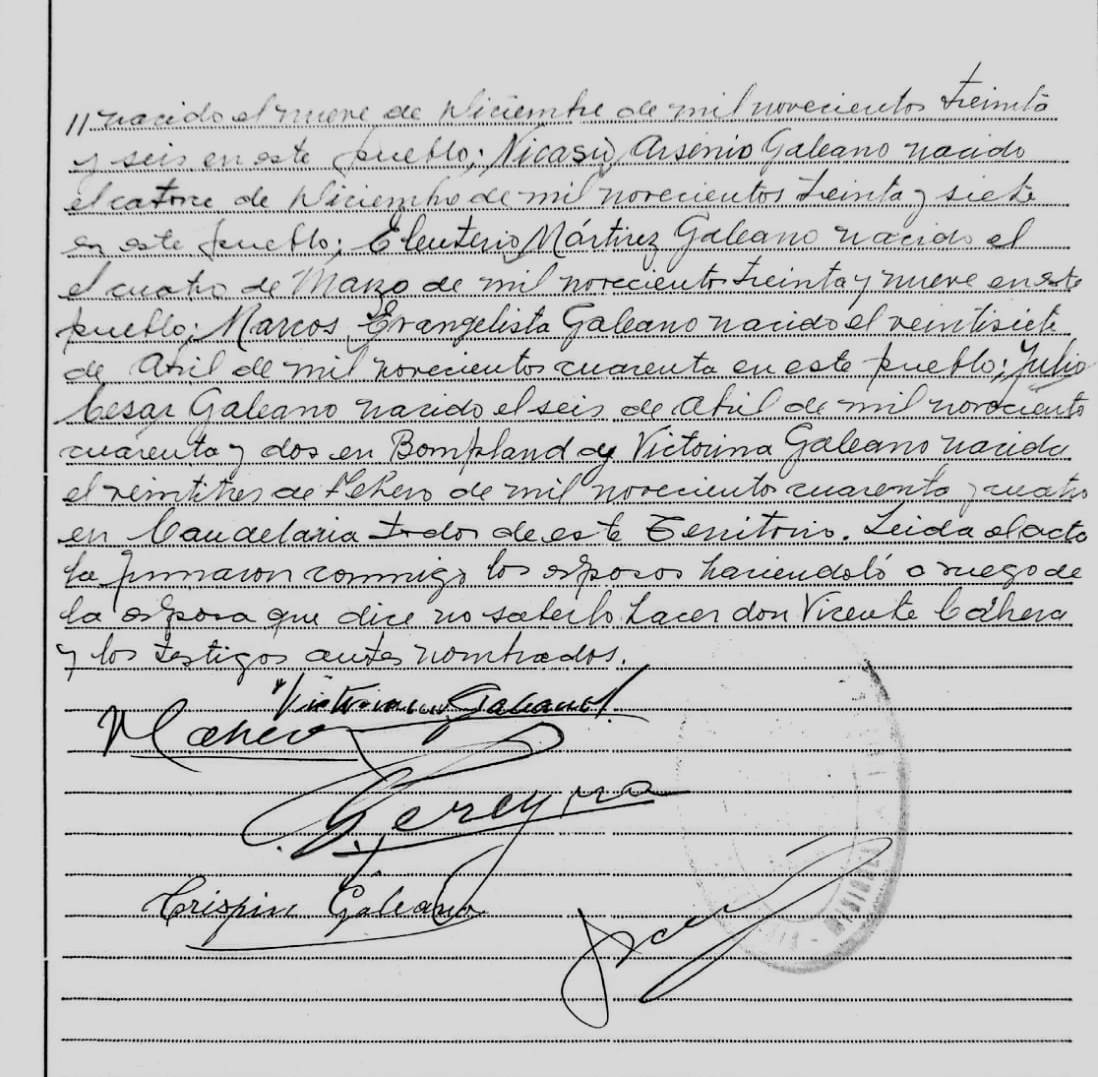 // nacido el nueve de Diciembre de mil novecientos treinta
y seis en este pueblo; Nicasio Arsenio Galeano nacido
el catorce de Diciembre de mil novecientos treinta y siete
en este pueblo; Eleuterio Mártirez Galeano nacido el
el cuatro de Marzo de mil novecientos treinta y nueve en este
pueblo; Marcos Evangelista Galeano nacido el veintisiete
de Abril de mil novecientos cuarenta en este pueblo; Julio
Cesar Galeano nacido el seis de Abril de mil novecientos
cuarenta y dos en Bompland y Victorina Galeano nacida
el veintitres de Febrero de mil novecientos cuarenta y cuatro
en Candelaria todos de este Territorio. Leida el acta
la firmaron conmigo los esposos haciendoló a ruego de
la esposa que dice no saberlo hacer don Vicente Cabrera
y los testigos antes nombrados.
Victoriano Galeano
Pereyra
Crispin Galeano
MISIONES